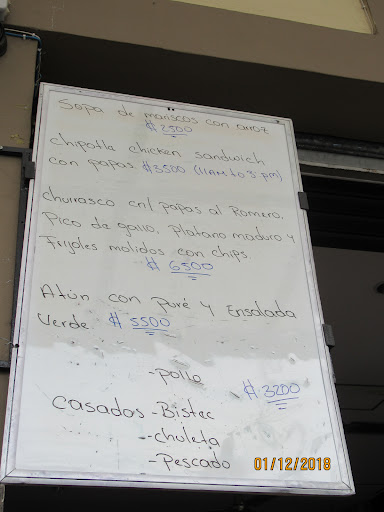 Sopa de mariscos con arroz
₡ 2500
chipotla chicken sandwich
con papas ₡3500 (11AM to 3 pm)
churrasco cn/ papas al Romero,
Pico de gallo, Platano maduro y
Frijoles molidos con chips.
₡ 6500
Atún con Puré y Ensalada
Verde ₡ 5500
-pollo
₡ 3200
casados -Bistec
-chuleta
-Pescado
01/12/2018